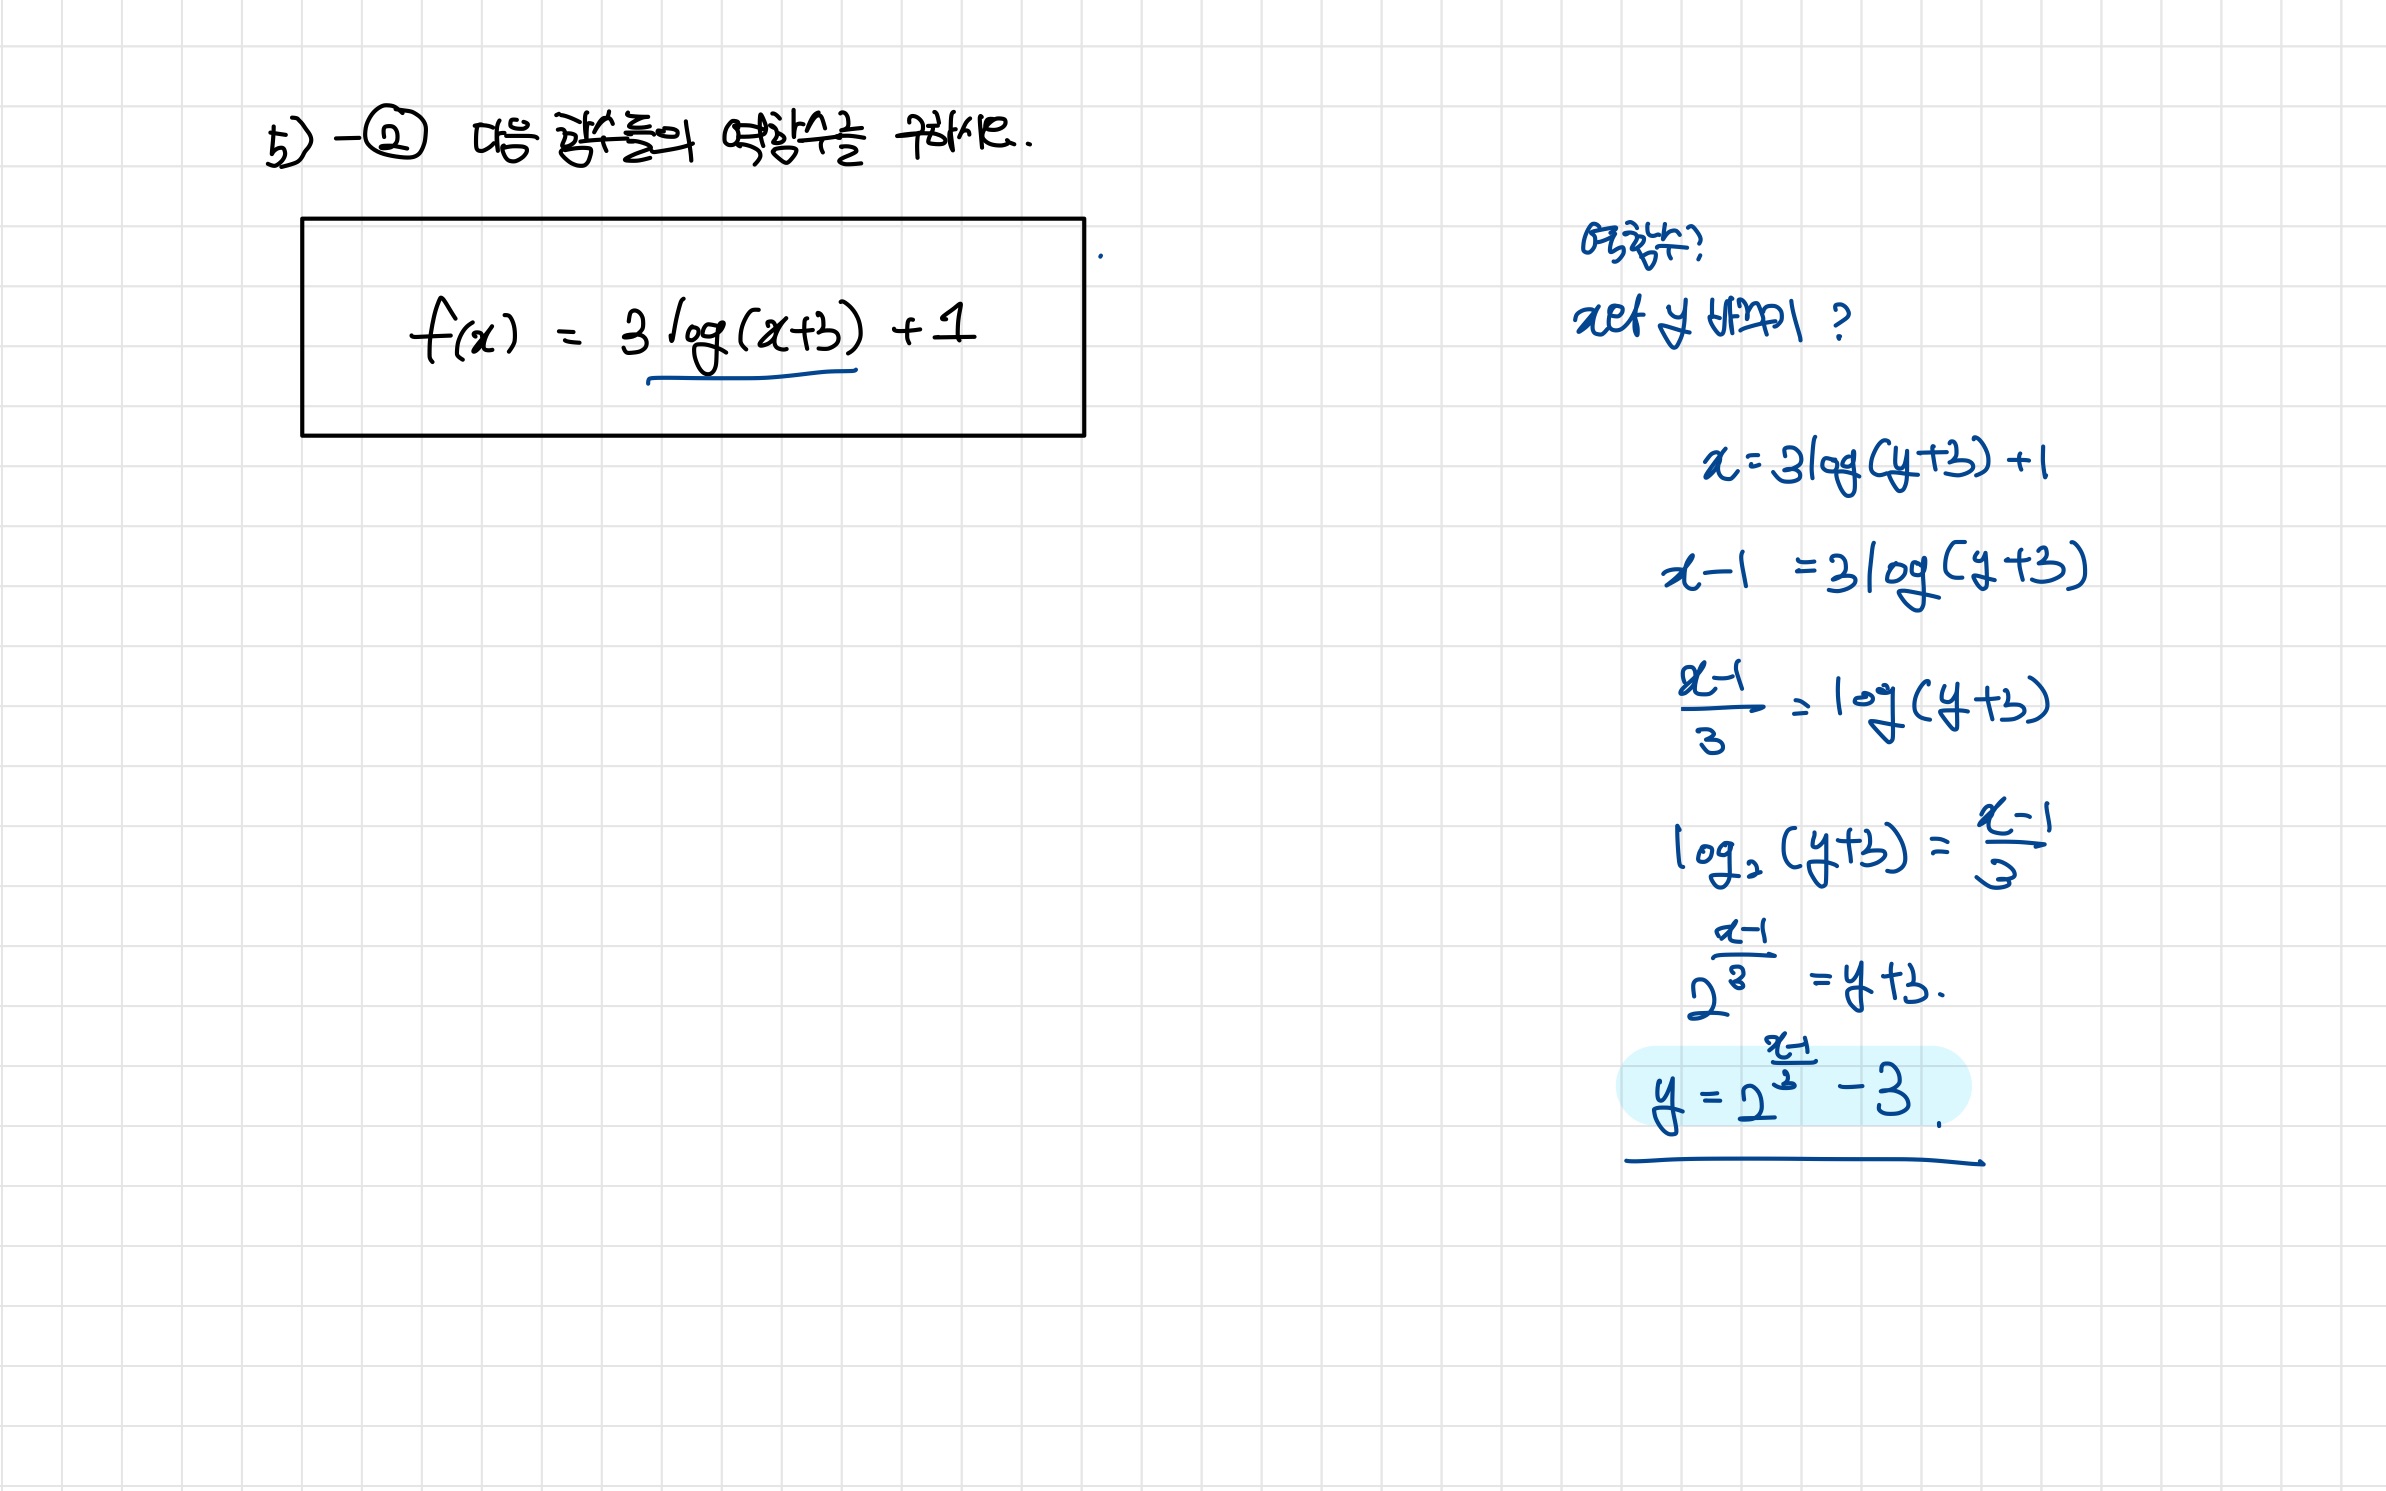 5) - ② 다음 함수들의 역함수를 구하시오.
f(x) = 3log(x+3) + 1
역함수?
x랑 y 바꾸기 ?
x = 3log(y+3) + 1
x-1 = 3log(y+3)
(x-1)/3 = log(y+3)
log₂(y+3) = (x-1)/3
2^((x-1)/3) = y+3.
y = 2^((x-1)/3) - 3.